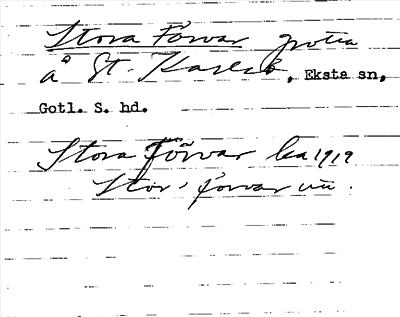 Stora Förvar grotta
å St. Karlsö, Eksta sn,
Gotl. S. hd.
Stora Förvar ka 1919
Stor, Forvar